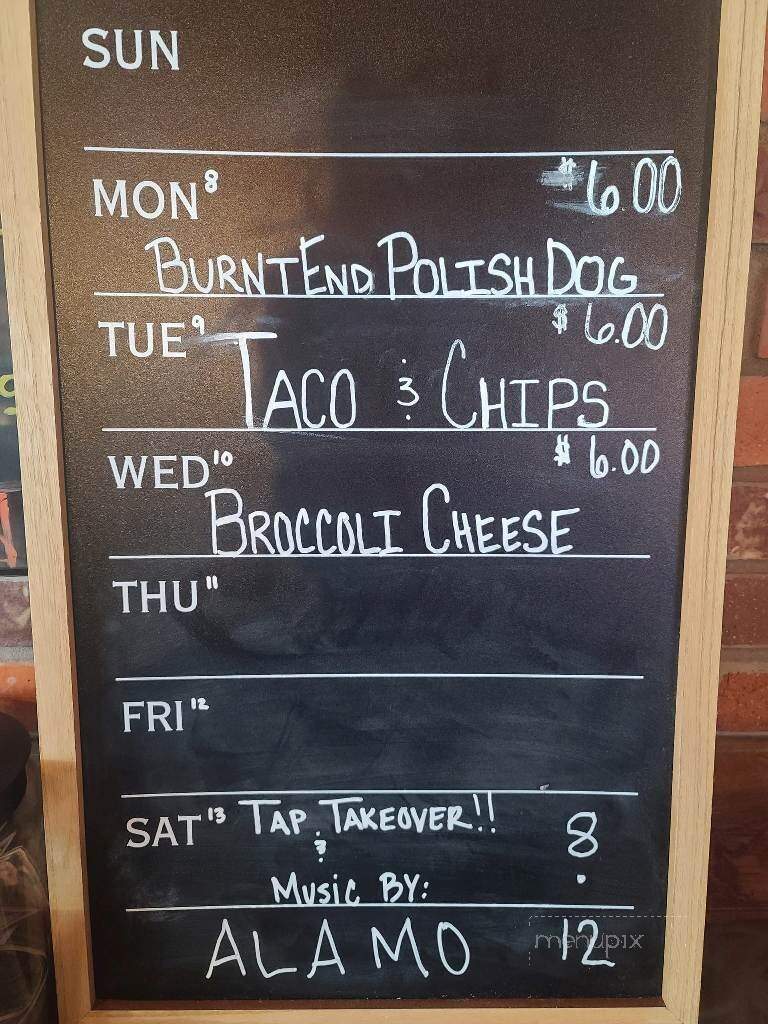 SUN
MON 8 $6.00
BURNT END POLISH DOG
TUE 9 $6.00
TACO & CHIPS
WED 10 $6.00
BROCCOLI CHEESE
THU 11
FRI 12
SAT 13 TAP TAKEOVER!! 8
&
MUSIC BY:
ALAMO 12
menupix